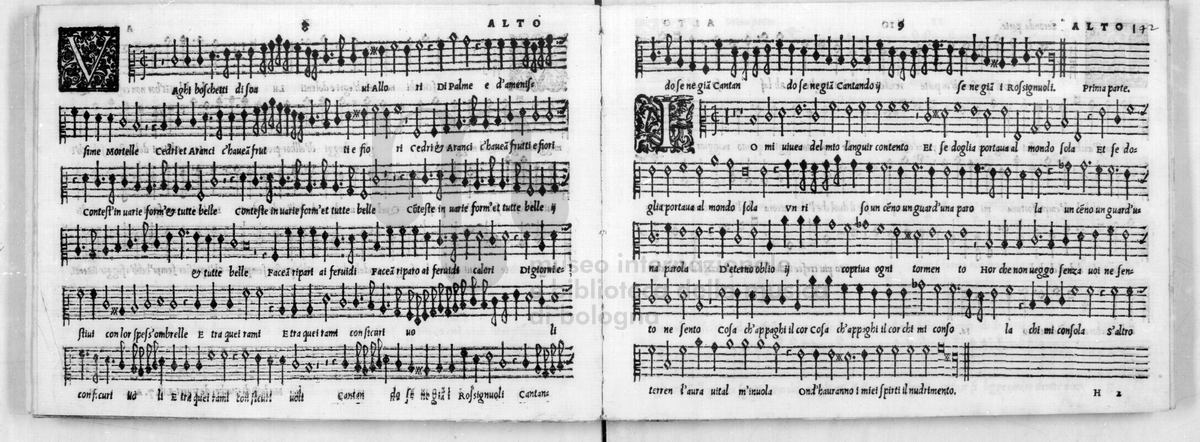 8 ALTO
V
Aghi boschetti di soa ui Allo ri Di Palme e d'amenise
sime Mortelle Cedri et Aranci c'hauea frut ti e fio ri Cedri & Aranci c'haueā frutti e fiori
Contest' in uarie form' & tutte belle Conteste in uarie form' et tutte belle Cōteste in uarie form' et tutte belle ij
& tutte belle Faceā ripari ai feruidi Faceā riparo ai feruidi calori Di giorni e=
stiui con lor spess' ombrelle E tra quei rami E tra quei rami con sicuri uo li
con sicuri uo li E tra quei rami con sicuri uoli Cantan do se ne già i Rossignuoli Cantan=
9 ALTO 142
do se ne già Cantan do se ne già Cantando ij se ne già i Rossignuoli. Prima parte.
O mi uiuea del mio languir contento Et se doglia portaua al mondo sola Et se do=
glia portaua al mondo sola vn ri so un cēno un guard' una paro la un cēno un guard'u=
na parola D'eterno oblio ij copriua ogni tormen to Hor che non ueggo senza uoi ne sen=
to ne sento Cosa ch'appaghi il cor Cosa ch'appaghi il cor chi mi conso la chi mi consola S'altro
terren l'aura uital m'inuola Ond'hauranno i miei spirti il nudrimento.
H 2
museo internazionale
e biblioteca della musica
di bologna